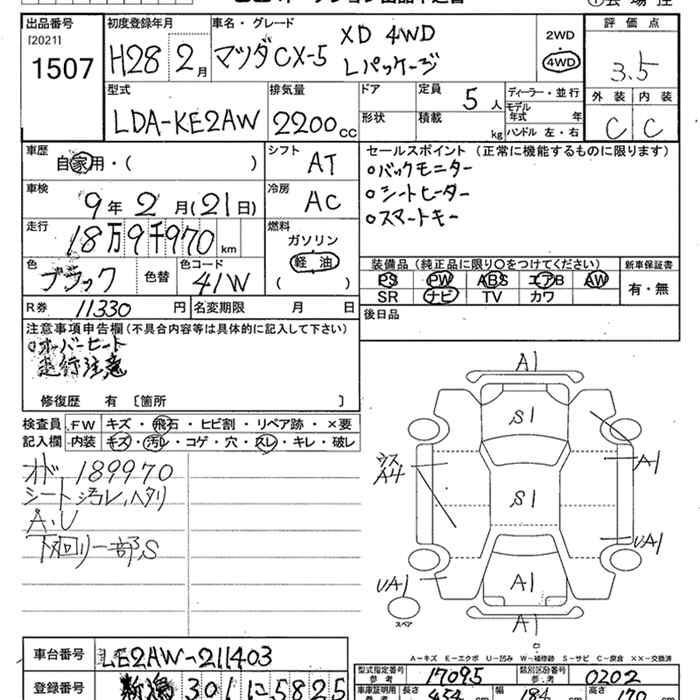 出品番号 初度登録年月 車名・グレード 評価点
[2021] 1507 H28 2月 マツダCX-5 XD 4WD Lパッケージ 2WD 4WD 3.5
型式 排気量 ドア 定員 5人 ディーラー・並行 外装 内装
LDA-KE2AW 2200cc 形状 積載 kg モデル年式 年 ハンドル 左・右 C C
車歴 自家用・( ) シフト AT セールスポイント (正常に機能するものに限ります)
○バックモニター
車検 9年2月(21日) 冷房 AC ○シートヒーター
○スマートキー
走行 18万9千970km 燃料 ガソリン 軽油 ( )
装備品 (純正品に限り○をつけてください) 新車保証書
色 ブラック 色替 色コード 41W PS PW ABS エアB AW 有・無
SR ナビ TV カワ
R券 11330円 名変期限 月 日 後日品
注意事項申告欄(不具合内容等は具体的に記入して下さい)
○オーバーヒート
走行注意
修復歴 有 [箇所 ]
検査員 FW キズ・飛石・ヒビ割・リペア跡・×要
記入欄 内装 キズ・汚レ・コゲ・穴・スレ・キレ・破レ
オド 189970
シート汚レ,ヘタリ
A.U
下回リ一部,S
A1
S1
A1
A4
S1
UA1
UA1
A1
スペア
A1
A−キズ E−エクボ U−凹み W−補修跡 S−サビ C−腐食 XX−交換済
車台番号 LE2AW-211403 型式指定番号 参考 17095 類別区分番号 参考 0202
登録番号 新潟 301 に 5825 車庫証明用 参考 長さ 454 cm 幅 184 cm 高さ 170